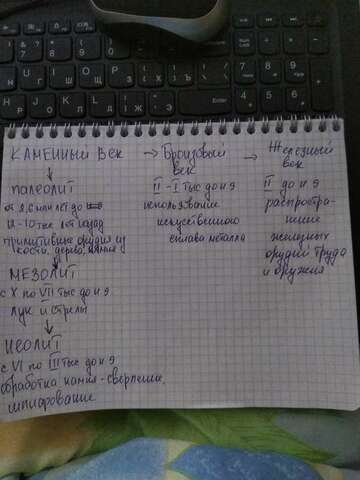 КАМЕННЫЙ ВЕК → Бронзовый век → Железный век
↓
ПАЛЕОЛИТ
от 2,6 млн лет до
12-10 тыс лет назад
примитивные орудия из
кость, дерев, камня
↓
МЕЗОЛИТ
с X по VII тыс до н э
лук и стрелы
↓
НЕОЛИТ
с VI по III тыс до н э
обработка камня - сверление,
шлифование
II - I тыс до н э
использование
искуственного
сплава металла
II до н э
распростра-
нение
железных
орудий труда
и оружия